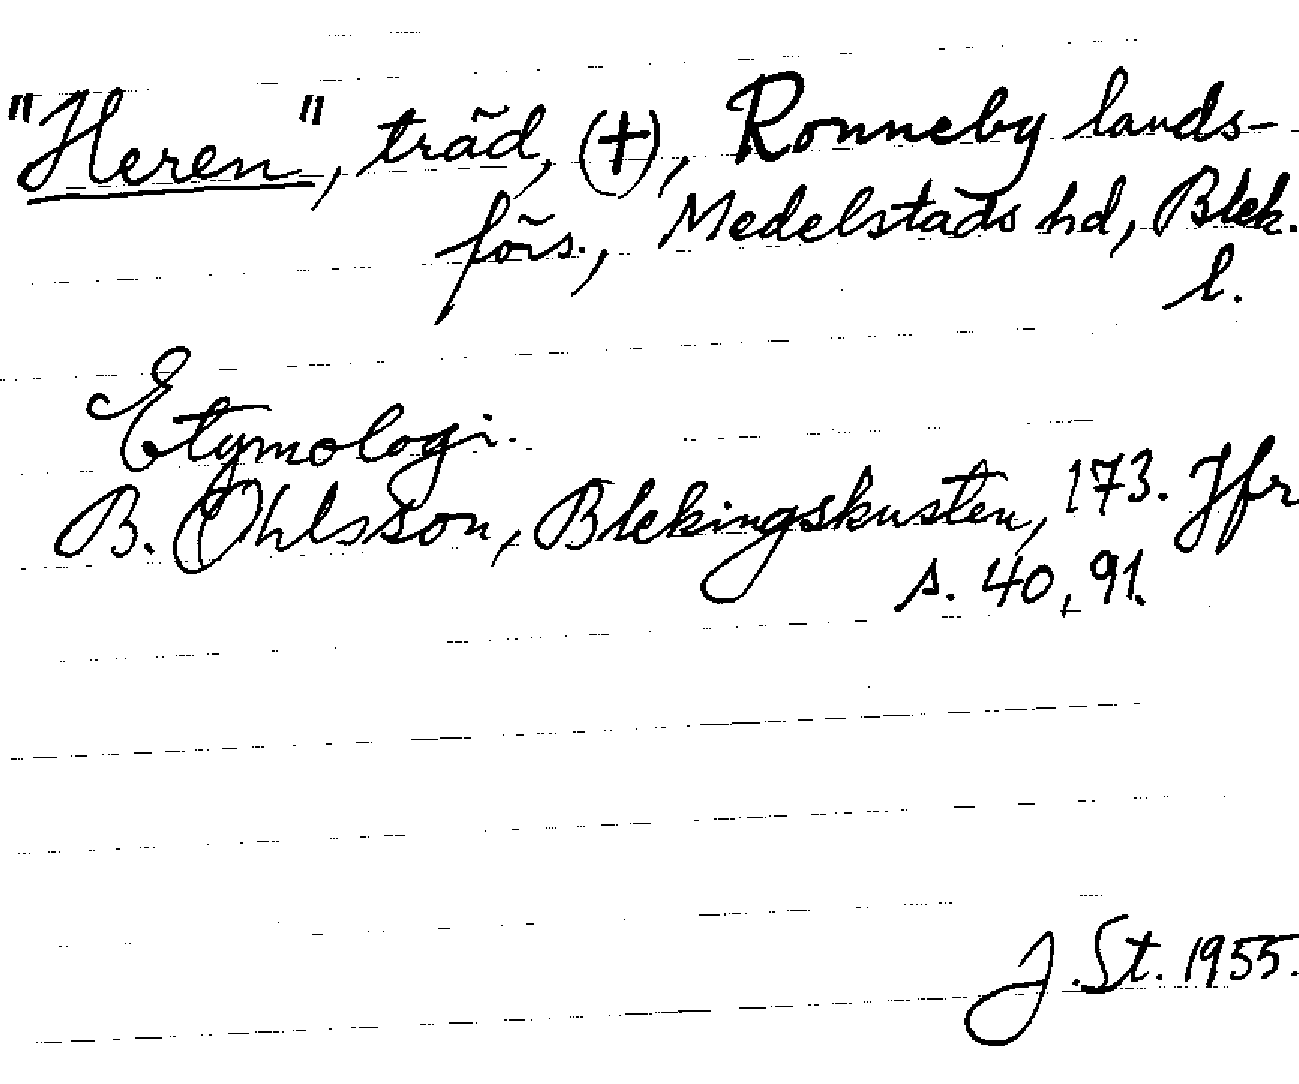 "Heren", träd, (†), Ronneby lands-
förs., Medelstads hd, Blek.
l.
Etymologi.
B. Ohlsson, Blekingskusten, 173. Jfr
s. 40, 91.
J. St. 1955.